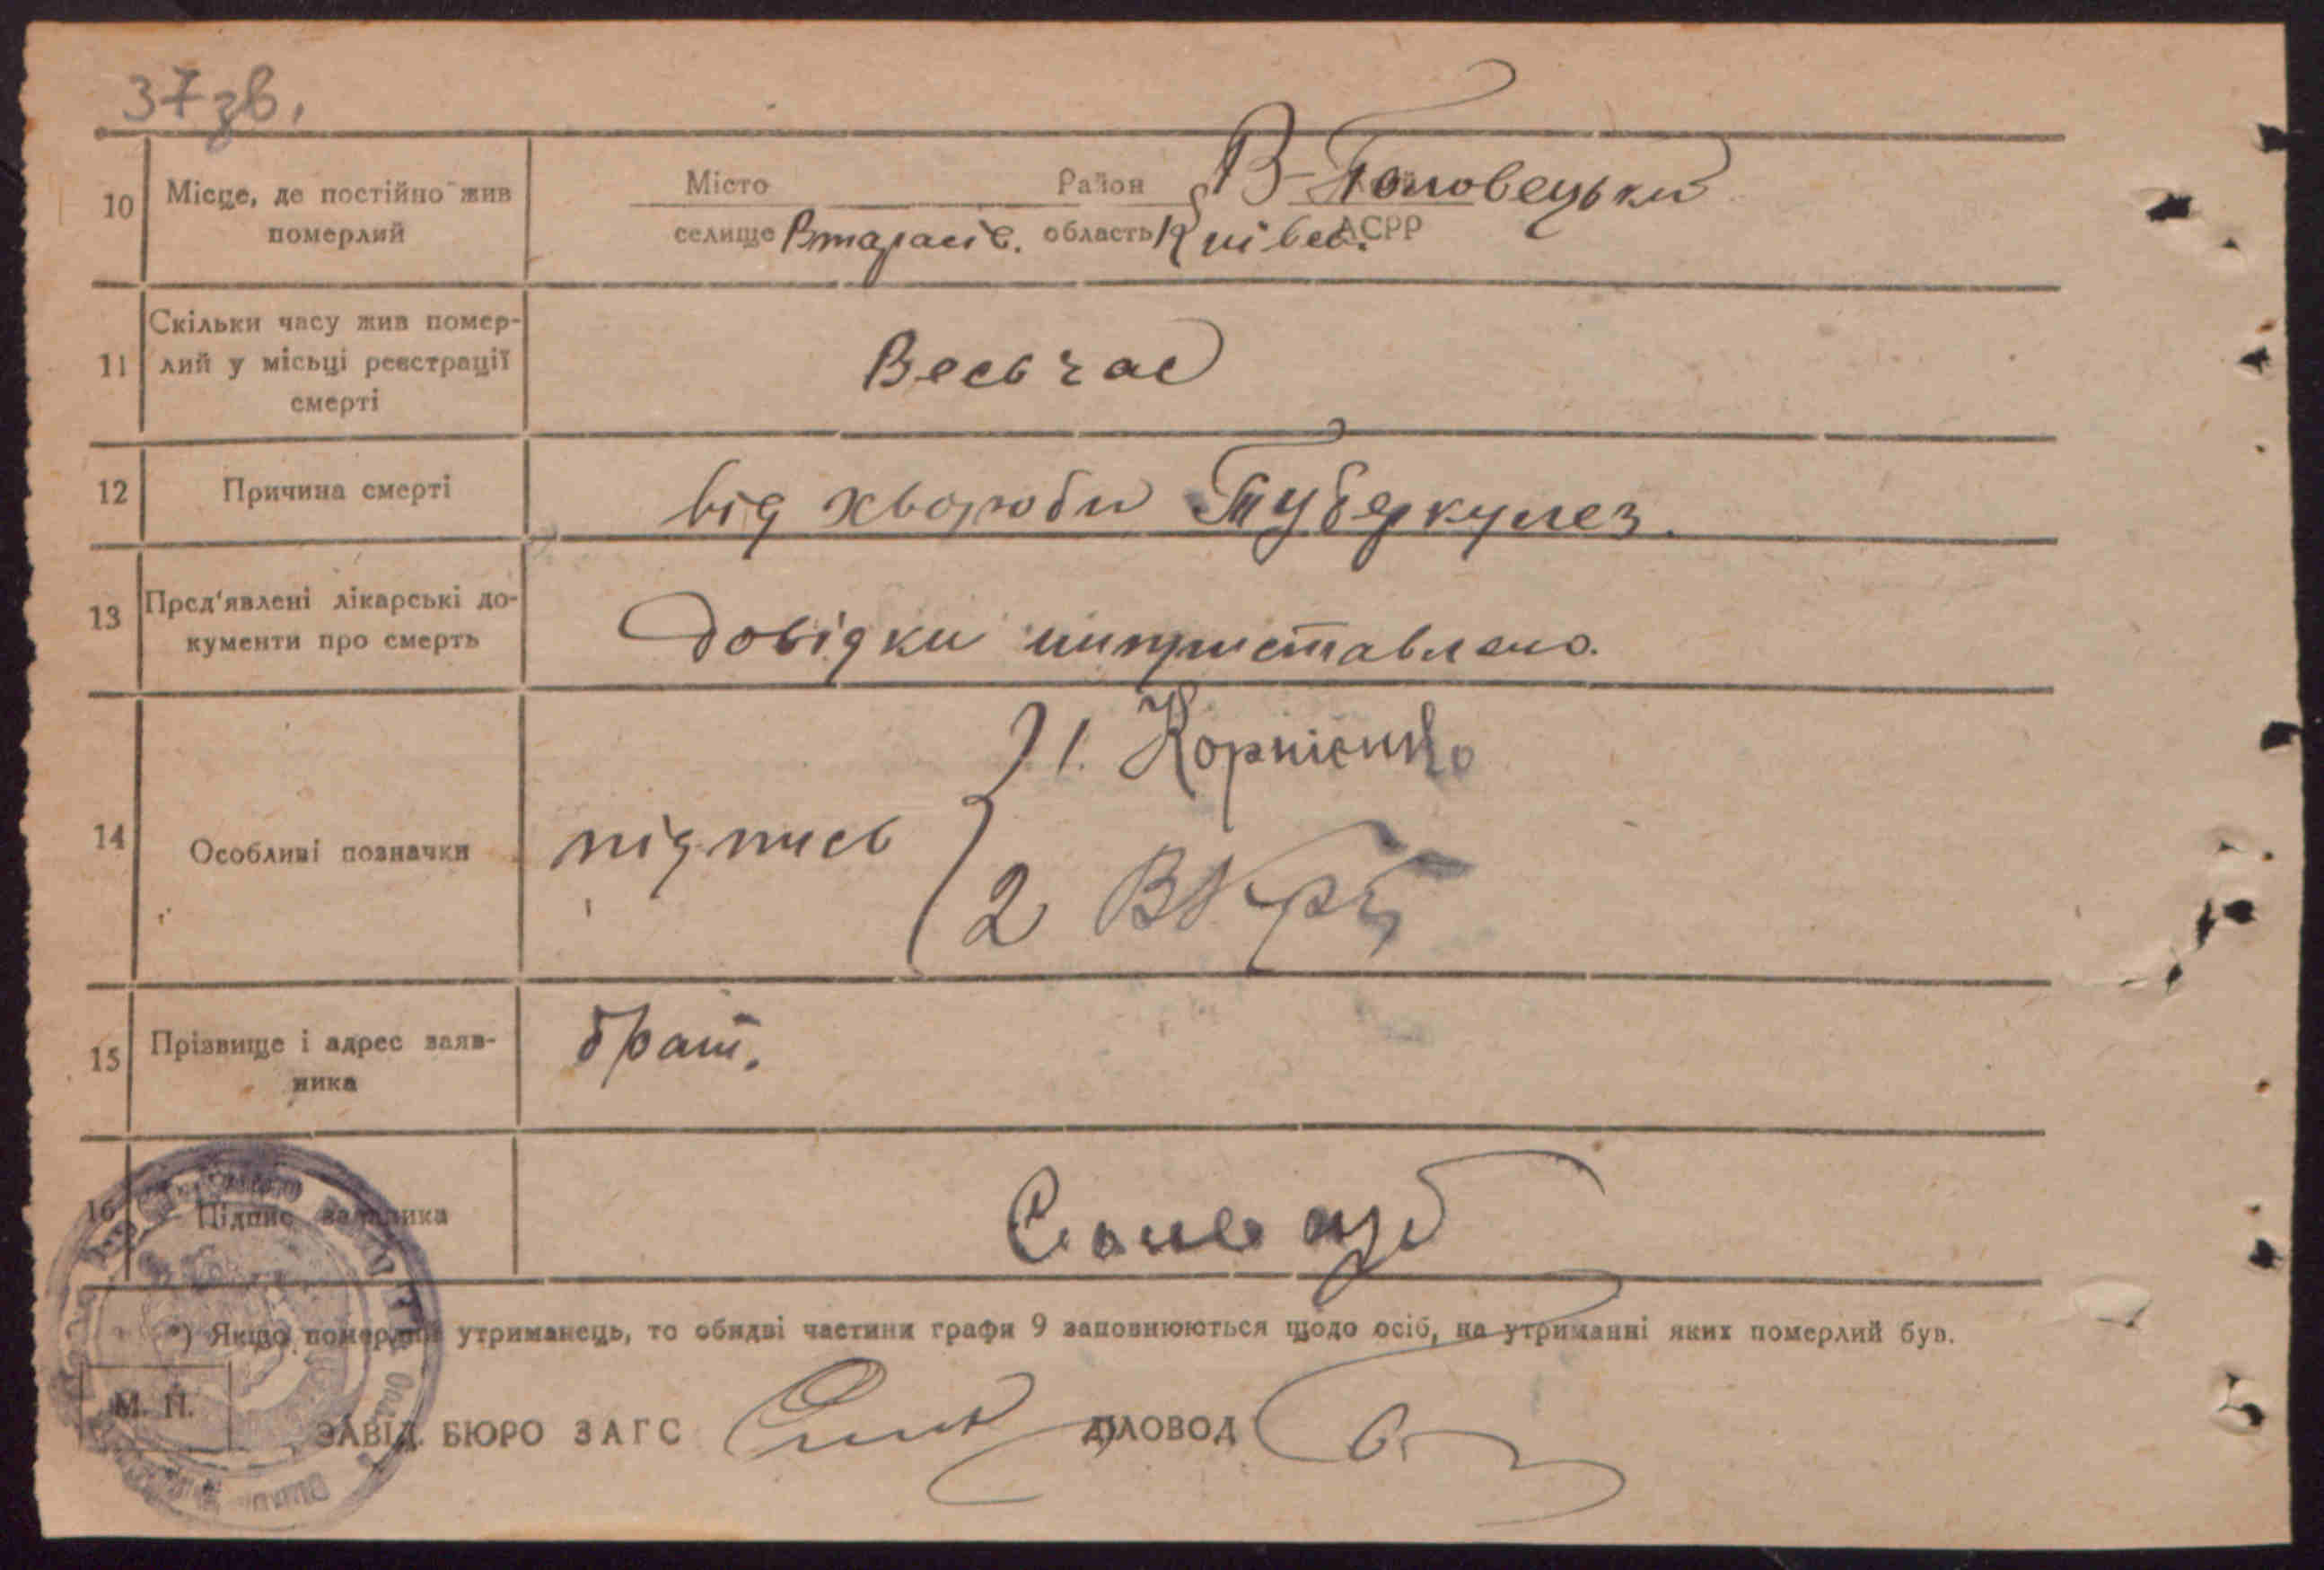 37 зв.
10 Місце, де постійно жив померлий
Місто Район В-Половецький
селище Втарасів. область Київсь. АСРР
11 Скільки часу жив помер-
лий у місьці реєстрації
смерті
Весь час
12 Причина смерті
від хвороби Туберкулез.
13 Пред'явлені лікарські до-
кументи про смерть
Довідки
14 Особливі позначки
підпись
1. Корнієнко
2
15 Прізвище і адрес заяв-
ника
брат.
16 Підпис заявника
*) Якщо померлий утриманець, то обидві частини графи 9 заповнюються щодо осіб, на утриманні яких померлий був.
М. П.
ЗАВІД. БЮРО ЗАГС ДІЛОВОД